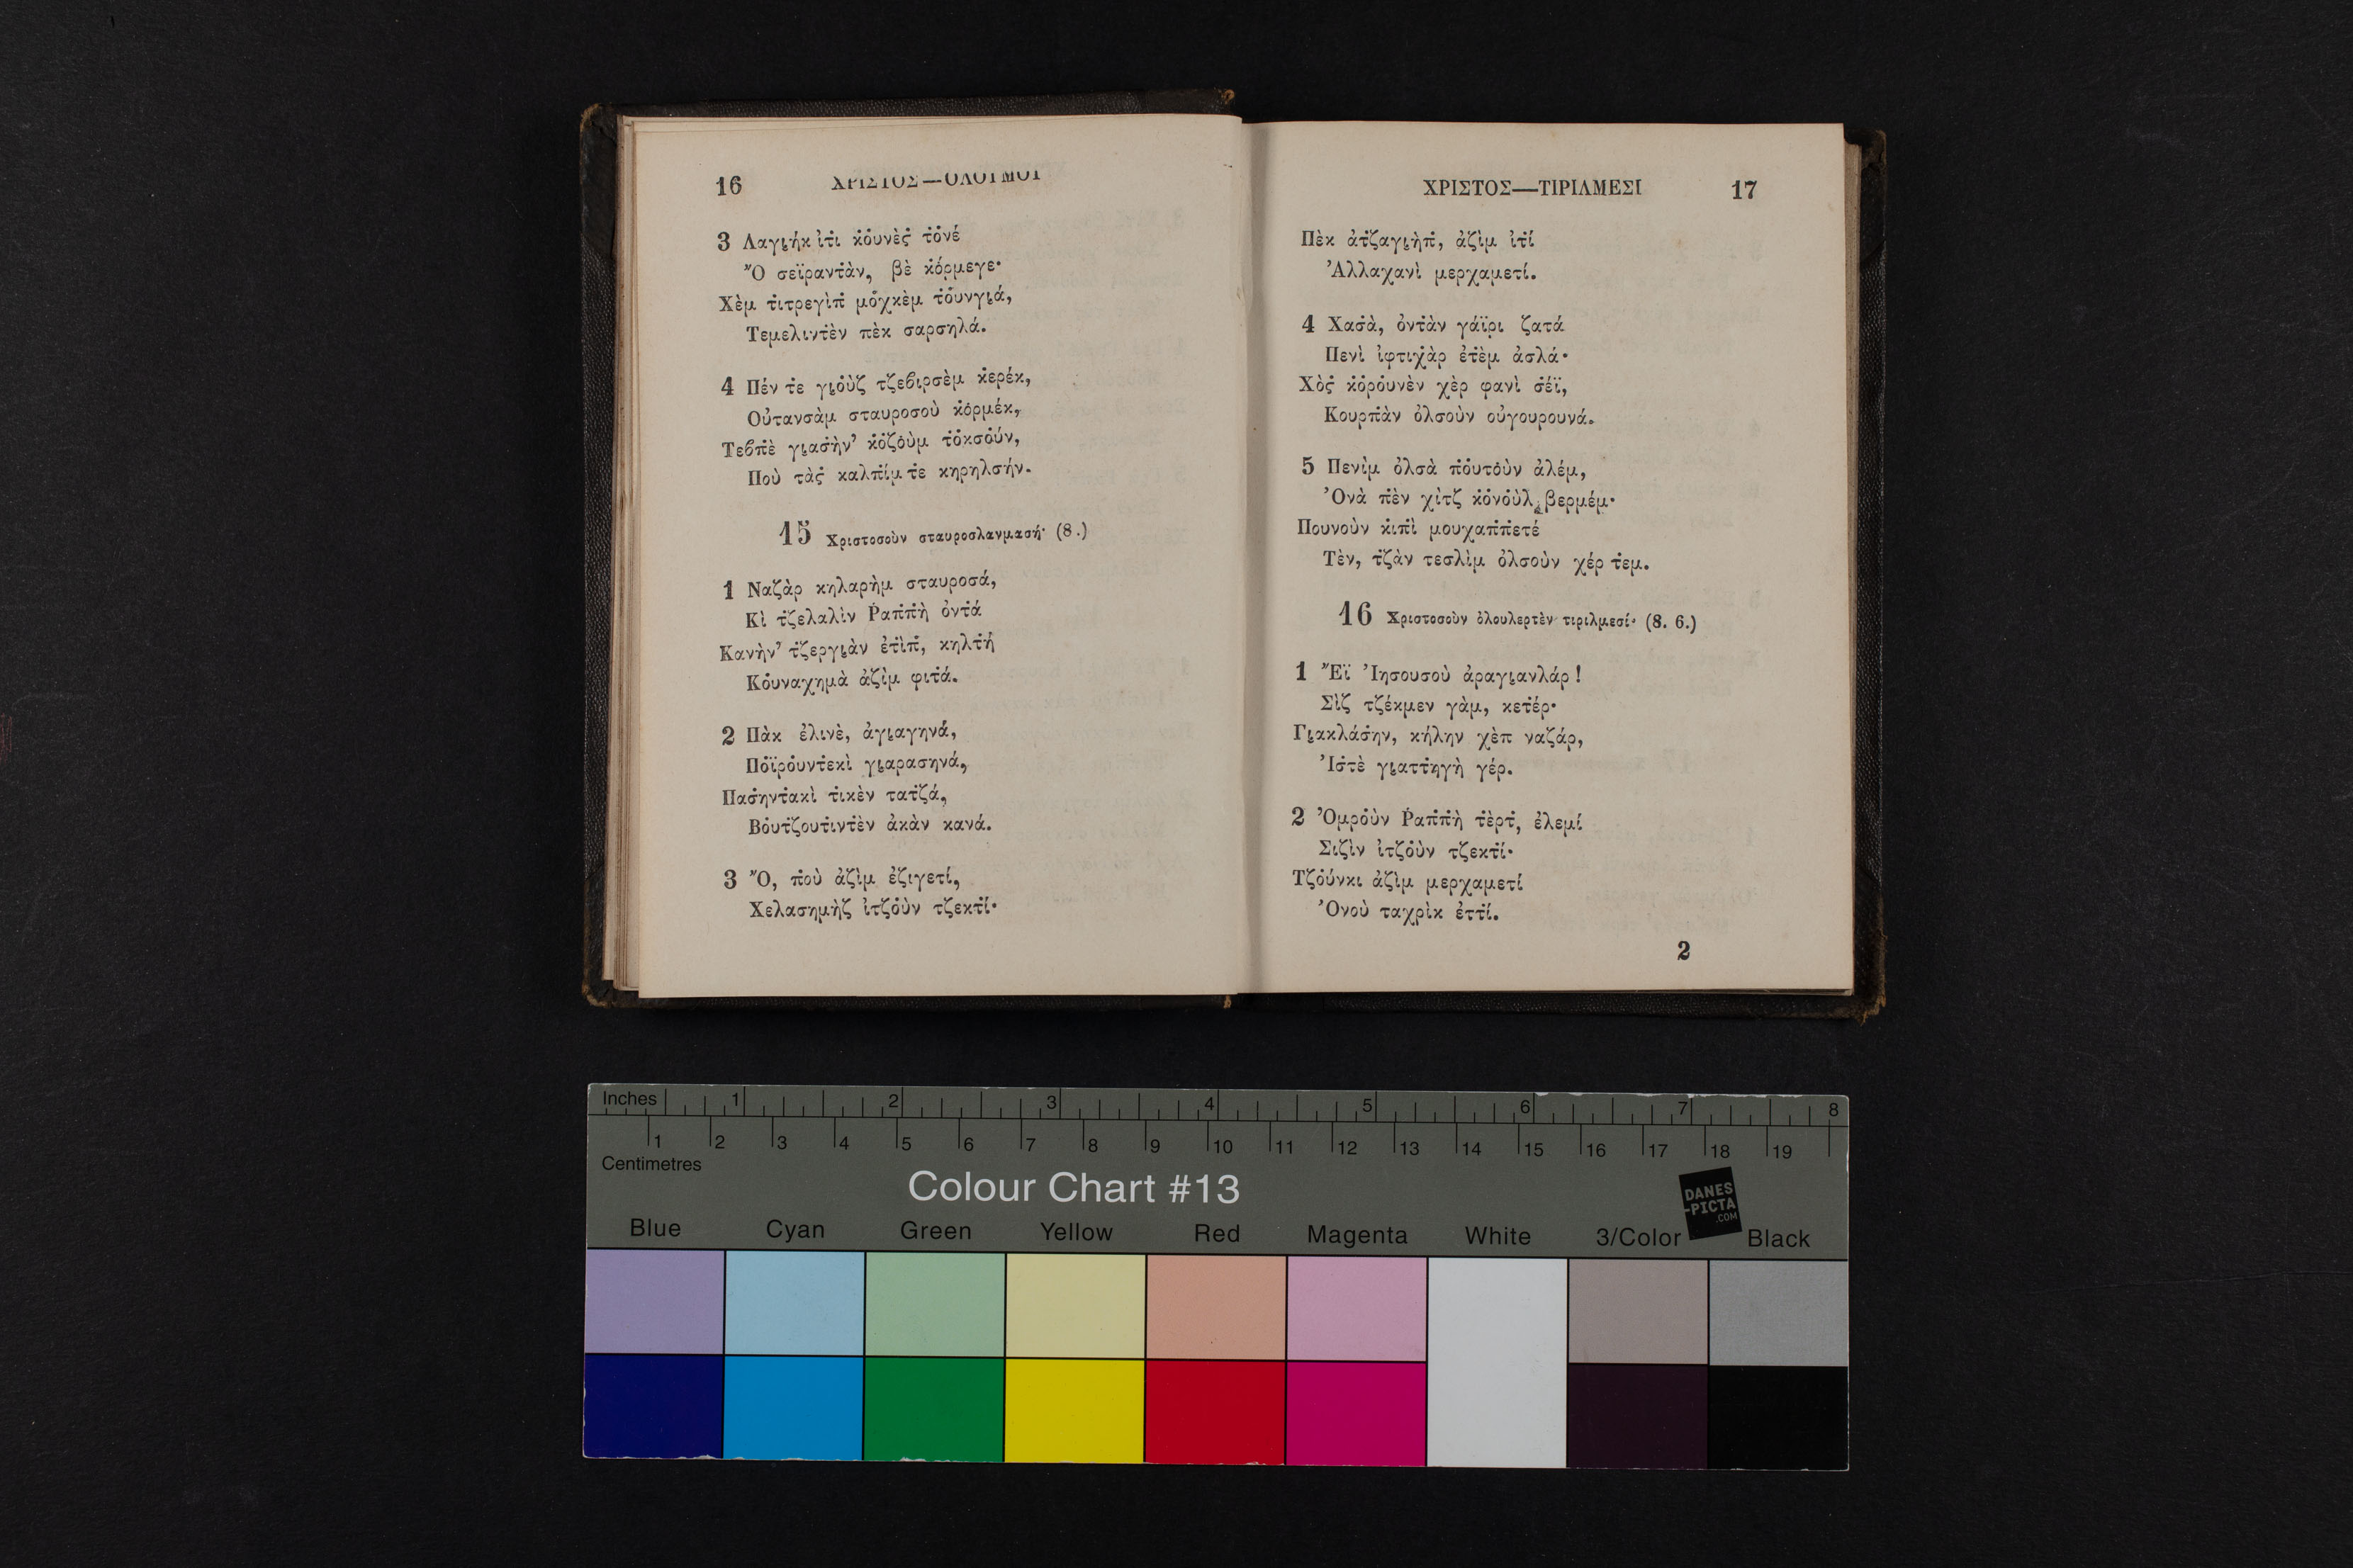 16 ΧΡΙΣΤΟΣ—ΟΛΟΥΜΟΥ
3 Λαγι̤ὴκ ἰτι κο̇υνὲσ̇ τὁνέ
Ὂ σεϊραντ̇ὰν, βὲ κὁρμεγε·
Χὲμ τ̇ιτρεγὶπ̇ μὁχκὲμ τὁυνγι̤ά,
Τεμελιντ̇ὲν πὲκ σαρσηλά.
4 Πέν τ̇ε γι̤ο̇ὺζ τζεβιρσὲμ κ̇ερέκ,
Οὐτανσὰμ σταυροσοὺ κ̇ὁρμέκ,
Τεβπ̇ὲ γι̤ασ̇ὴν' κ̇ὁζο̇ὺμ τ̇ὁκσο̇ύν,
Ποὺ τὰσ̇ καλπ̇ίμ τ̇ε κηρηλσήν.
15 Χριστοσοὺν σταυροσλανμασή· (8.)
1 Ναζὰρ κηλαρὴμ σταυροσά,
Κὶ τ̇ζελαλὶν Ῥαπ̇π̇ὴ ὀντ̇ά
Κανὴν' τ̇ζεργι̤ὰν ἐτ̇ὶπ̇, κηλτ̇ή
Κο̇υναχημὰ ἀζὶμ φιτ̇ά.
2 Πὰκ ἐλινὲ, ἀγι̤αγηνά,
Πο̇ϊρο̇υντ̇εκὶ γι̤αρασηνά,
Πασ̇ηντ̇ακὶ τ̇ικὲν τατ̇ζά,
Βο̇υτ̇ζουτ̇ιντ̇ὲν ἀκὰν κανά.
3 Ὂ, π̇οὺ ἀζὶμ ἐζιγετί,
Χελασημὴζ ἰτζο̇ὺν τζεκτ̇ί·
ΧΡΙΣΤΟΣ—ΤΙΡΙΛΜΕΣΙ 17
Πὲκ ἀτ̇ζαγι̤ὴπ̇, ἀζὶμ ἰτ̇ί
Ἀλλαχανὶ μερχαμετί.
4 Χασ̇ὰ, ὀντ̇ὰν γάϊρι ζατά
Πενὶ ἰφτιχ̇ὰρ ἐτ̇ὲμ ἀσλά·
Χὸσ̇ κ̇ὁρο̇υνὲν χὲρ φανὶ σ̇έϊ,
Κουρπ̇ὰν ὀλσοὺν οὐγουρουνά.
5 Πενὶμ ὀλσὰ π̇ο̇υτο̇ὺν ἀλέμ,
Ὀνὰ πὲν χὶτζ κ̇ὁνο̇ὺλ βερμέμ·
Πουνοὺν κ̇ιπ̇ὶ μουχαπ̇π̇ετέ
Τὲν, τ̇ζὰν τεσλὶμ ὀλσοὺν χέρ τ̇εμ.
16 Χριστοσοὺν ὀλουλερτ̇ὲν τιριλμεσί· (8. 6.)
1 Ἒϊ Ἰησουσοὺ ἀραγι̤ανλάρ!
Σὶζ τζέκμεν γὰμ, κετ̇έρ·
Γι̤ακλάσ̇ην, κήλην χὲπ ναζάρ,
Ἰσ̇τὲ γι̤αττ̇ηγὴ γέρ.
2 Ὀμρο̇ὺν Ῥαπ̇π̇ὴ τ̇ὲρτ̇, ἐλεμί
Σιζὶν ἰτζο̇ὺν τζεκτ̇ί·
Τζο̇ύνκι ἀζὶμ μερχαμετί
Ὀνοὺ ταχρὶκ ἐττ̇ί.
2
Inches 1 2 3 4 5 6 7 8
1 2 3 4 5 6 7 8 9 10 11 12 13 14 15 16 17 18 19
Centimetres
Colour Chart #13
DANES
-PICTA
.COM
Blue Cyan Green Yellow Red Magenta White 3/Color Black